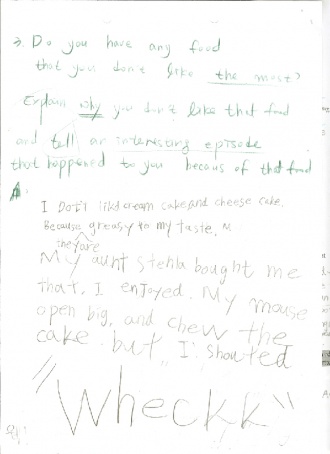 3. Do you have any food
that you don't like the most?
Explain why you don't like that food
and tell an interesting episode
that happened to you becaus of that food
A.
I Don't like cream cake and cheese cake.
Because they are greasy to my taste.
My aunt Stehla bought me
that. I enjoyed. My mouse
open big, and chew the
cake. but, I shouted
"Wheckk"